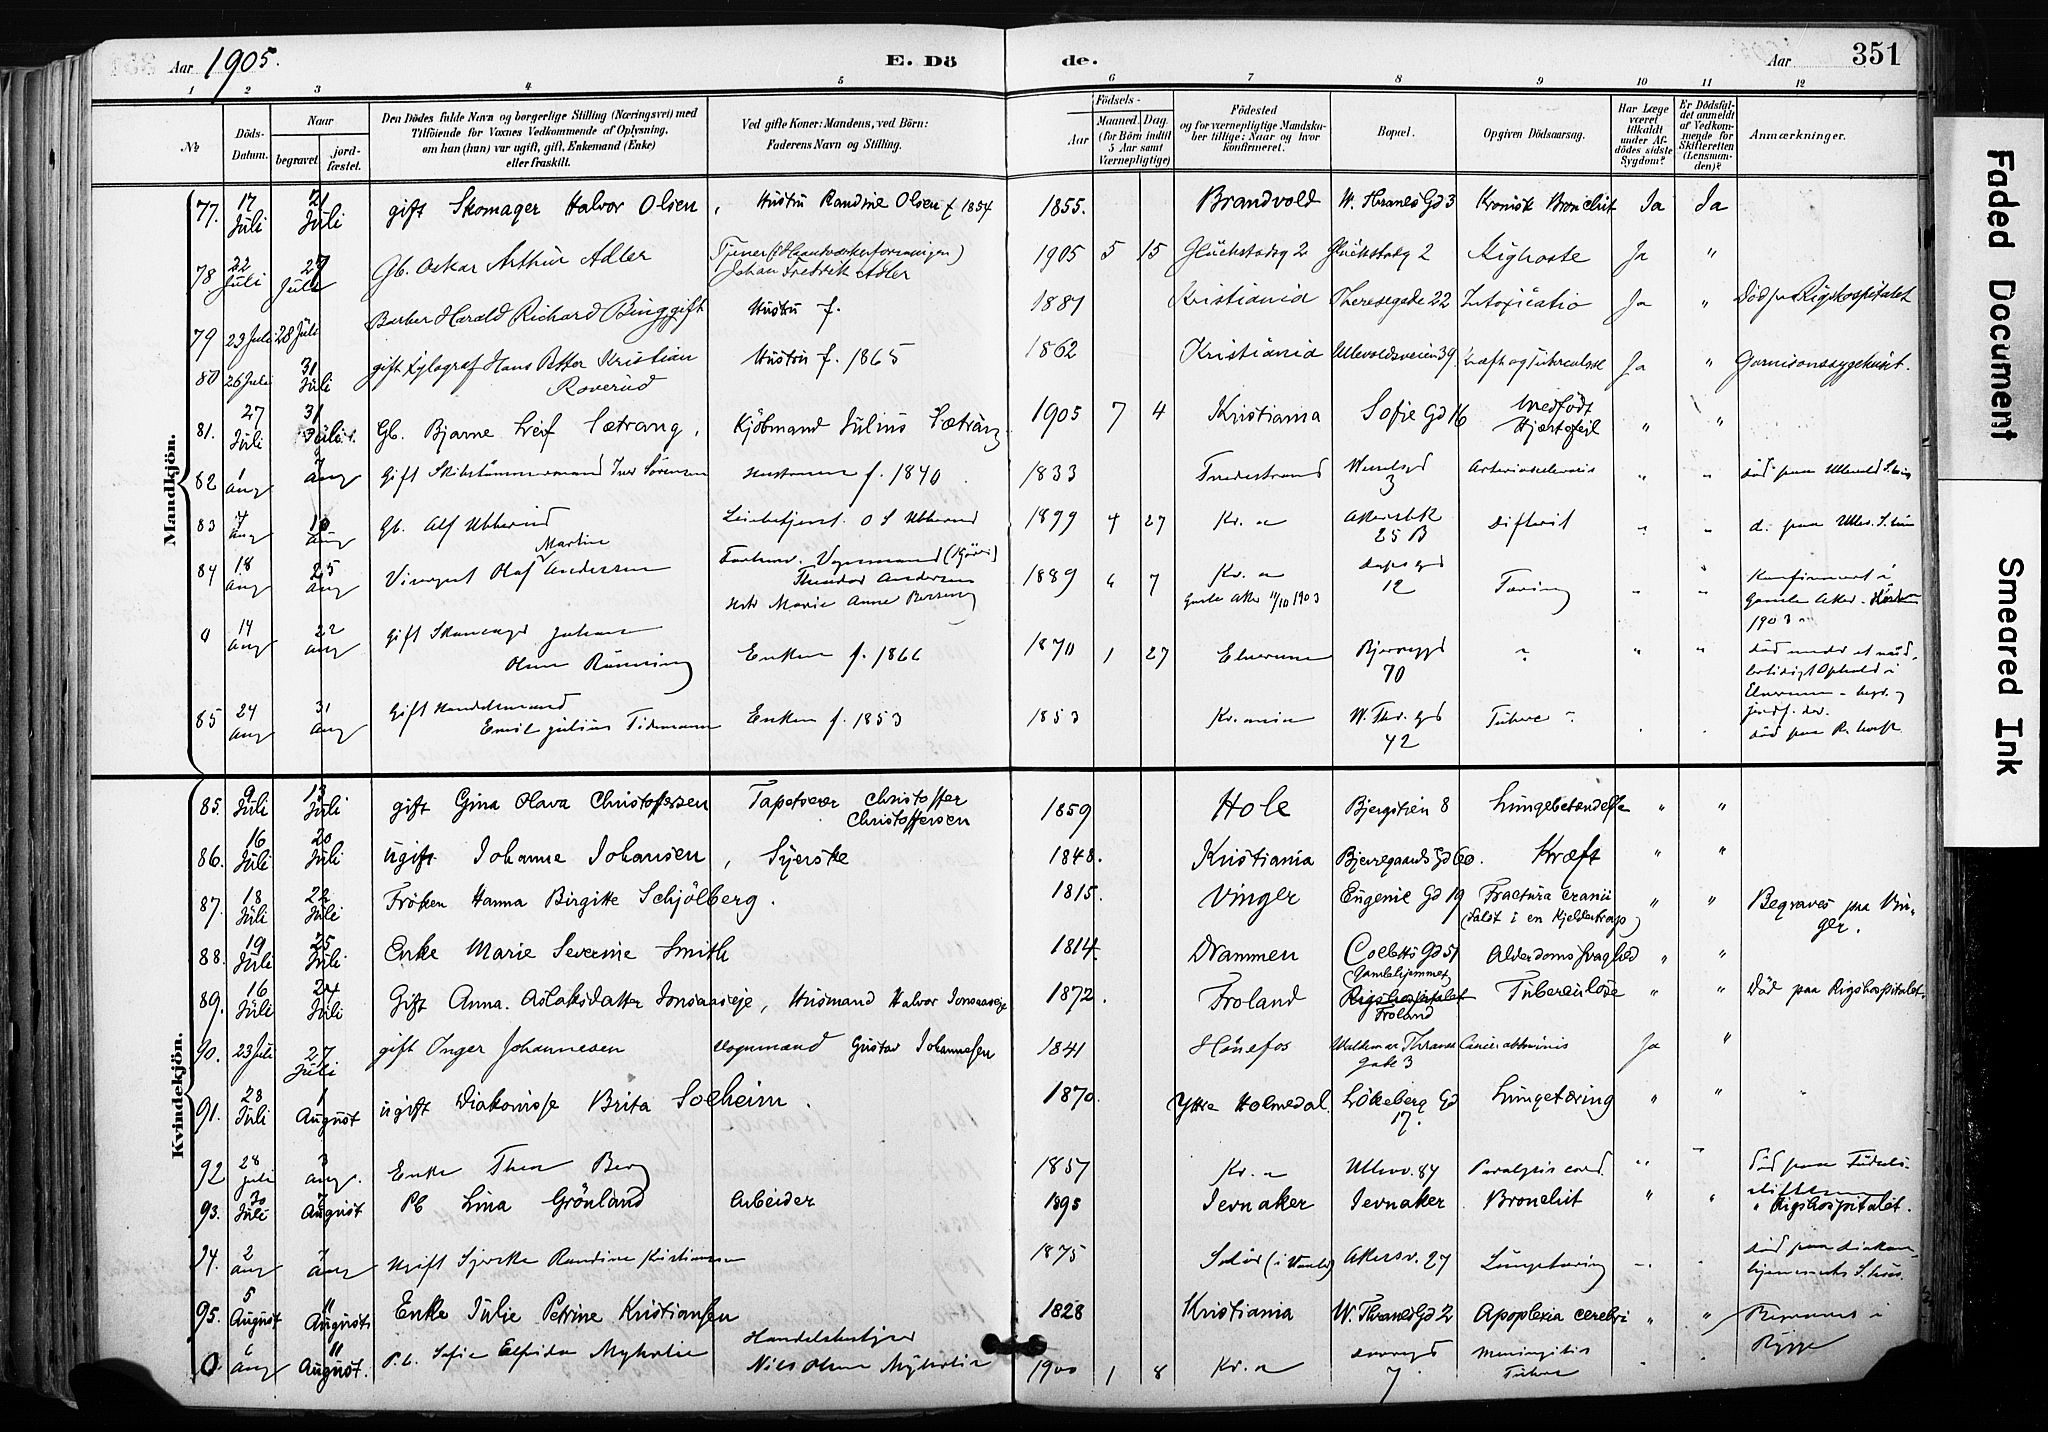 Aar 1905.
E. Dö
de.
Aar
351
1 2 3 4 5 6 7 8 9 10 11 12
№
Döds-Datum.
Naar
begravet
jord-fæstet.
Den Dödes fulde Navn og borgerlige Stilling (Næringsvei) med
Tilföiende for Voxnes Vedkommende af Oplysning,
om han (hun) var ugift, gift, Enkemand (Enke)
eller fraskilt.
Ved gifte Koner: Mandens, ved Börn:
Faderens Navn og Stilling.
Födsels-
Aar
Maaned. Dag.
(for Börn indtil
5 Aar samt
Værnepligtige)
Födested
og for værnepligtige Mandska-
ber tillige: Naar og hvor
konfirmeret.
Bopæl.
Opgiven Dödsaarsag.
Har Læge
været
tilkaldt
under Af-
dödes sidste
Sygdom?
Er Dödsfal-
det anmeldt
af Vedkom-
mende for
Skifteretten
(Lensman-
den)?
Anmærkninger.
Mandkjön.
77. 17 Juli 21 Juli gift Skomager Halvor Olsen, Hustru Randine Olsen f 1854 1855. Brandvold W. Thranes Gd 3 Kronisk Bronchit Ja Ja
78 22 Juli 27 Juli Gb. Oskar Arthur Adler Tjener (Haandværkerforeningen)
Johan Fredrik Adler 1905 5 15 Glückstadsg 2 Glückstadsg 2 Kighoste Ja "
79 23 Juli 28 Juli Barber Harald Richard Bing gift Hustru f. 1881 Kristiania Theresegade 22 Intoxicatio Ja " Död på Rigshospitalet
80 26 Juli 31 Juli gift Xylograf Hans Petter Kristian
Roverud Hustru f. 1865 1862 Kristiania Ullevoldsveien 39 Kræft og Tuberculose Ja " Garnisonssygehuset.
81. 27 Juli 31 Juli Gb. Bjarne Leif Sætrang, Kjöbmand Julius Sætrang 1905 7 4 Kristiania Sofie Gd 16 Medfödt
Hjertefeil " "
82 1 Aug 7 Aug Gift Skibstömmermand Iver Sörensen Hustruen f. 1840 1833 Tvedestrand Wesselsgd
3 Arteriosclerosis " " död paa Ullevold S.hus
83 7 Aug 10 Aug Gb. Alf Ubberud O S Ubberud 1899 4 27 Kr. a 25 B Difterit " " d. paa Ullev. S.hus
84 18 Aug 25 Aug Visergut Olaf Martin Andersen Forhenv. Vognmand
Theodor Andersen
Marie Anne 1889 6 7 Kr. a
Gamle Aker 11/10 1903 12 Tæring " " Konfirmert i
Gamle Aker Kirke
1903
0 14 Aug 22 Aug Gift Skomager Johan
Olsen Rönning Enken f. 1866 1870 1 27 Elverum
70 " " död under et mid-
lertidigt Ophold i
Elverum - begr. og
jordf. der.
85 24 Aug 31 Aug Gift Handelsmand
Emil Julius Tidemann Enken f. 1853 1853 Kr.ania W. Thr. gd
42 Tuberc död paa R. hosp.
Kvindekjön.
85. 9 Juli 13 Juli gift Gina Olava Christoffersen Tapetserer Christoffer
Christoffersen 1859 Hole Bjergstien 8 Lungebetændelse " "
86. 16 Juli 20 Juli ugift. Johanne Johansen, Syerske 1848. Kristiania Bjerregaards Gd 60. Kræft " "
87. 18 Juli 22 Juli Fröken Hanna Birgitte Schjölberg. 1815. Vinger Eugenie Gd 19 Fractura cranii
(Faldt i en Kjeldertrap) " " Begraves paa Vin-
ger.
88. 19 Juli 25 Juli Enke Marie Severine Smith 1814. Drammen Coletts Gd 51
Gamlehjemmet Alderdomssvaghed " "
89. 16 Juli 24 Juli Gift Anna Aslaksdatter Jonsaaseje, Husmand Halvor Jonsaaseje 1872. Froland Rigshospitalet
Froland Tuberculose " " Död paa Rigshospitalet.
90. 23 Juli 27 Juli gift Inger Johannesen Vognmand Gustav Johannesen 1841 Hönefos Waldemar Thranes
Gade 3 Cancer abdominis Ja "
91. 28 Juli 1 August ugift Diakonisse Brita Solheim. 1870. Ytre Holmedal. Lökeberg Gd
17. Lungetæring " "
92 28 Juli 3 Aug. Enke Thea Berg 1857 Kr. a Ullevv. 84 Paralysis cord. " " Död paa Födsels-
stiftelsen
93. 30 Juli 7 August Pb Lina Grönland Arbeider 1895 Jevnaker Jevnaker Bronchit " " " Rigshospitalet.
94. 2 Aug 7 Aug Ugift Syerske Randine Kristiansen 1875 Akersv. 27 Lungetæring död paa Diakon-
hjemmets S.hus.
95. 5 August 11 August Enke Julie Petrine Kristiansen 1828 Kristiania W. Thranes Gd 2 Apoplexia cerebri " " Begraves i
Rygge
0. 6 Aug 11 August. P.b. Sofie Elfrida Myhrlie Handelsbetjent
Nils Olsen Myhrlie 1900 1 8 Kr. a
7 Meningitis
Tuberc
Faded Document
Smeared Ink